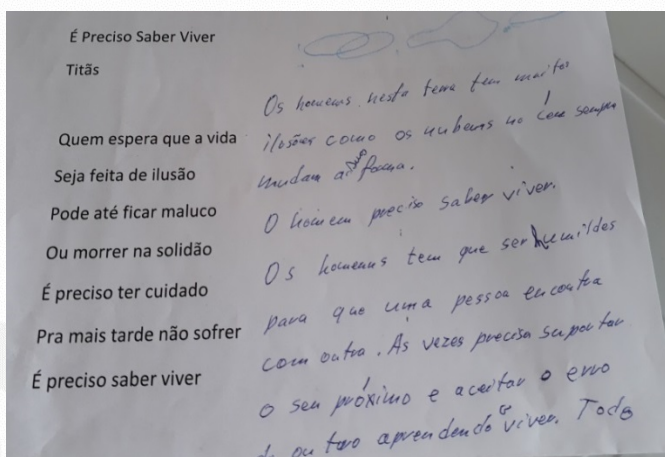 É Preciso Saber Viver
Titãs
Quem espera que a vida
Seja feita de ilusão
Pode até ficar maluco
Ou morrer na solidão
É preciso ter cuidado
Pra mais tarde não sofrer
É preciso saber viver
Os homens nesta terra tem muitas
ilusões como os nubens no céu sempre
mudam a sua forma.
O homem preciso saber viver.
Os homens tem que ser humildes
para que uma pessoa encontra
com outra. Às vezes precisa suportar
o seu próximo e aceitar o erro
outro aprendendo a viver. Todo